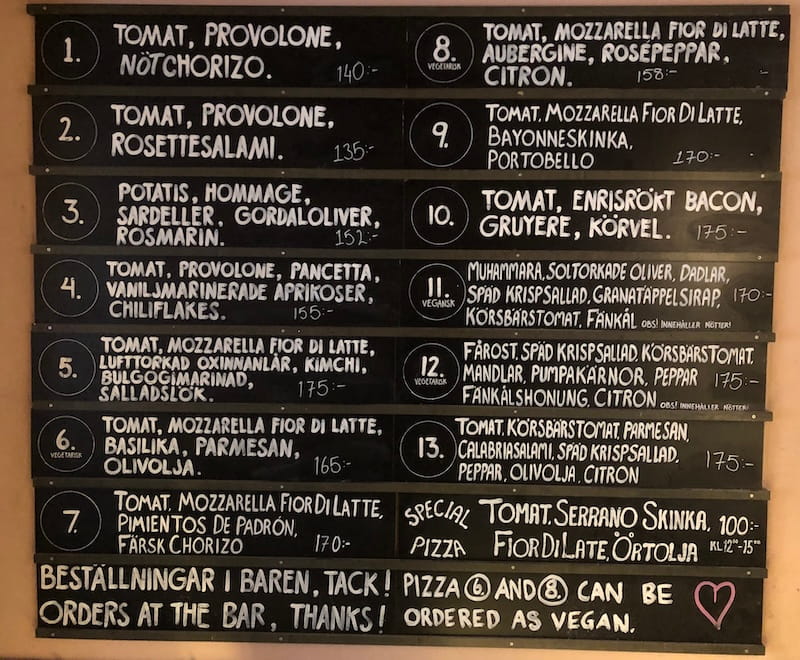 1.
TOMAT, PROVOLONE,
NÖTCHORIZO. 140:-
2.
TOMAT, PROVOLONE,
ROSETTESALAMI. 135:-
3.
POTATIS, HOMMAGE,
SARDELLER, GORDALOLIVER,
ROSMARIN. 152:-
4.
TOMAT, PROVOLONE, PANCETTA,
VANILJMARINERADE APRIKOSER,
CHILIFLAKES. 155:-
5.
TOMAT, MOZZARELLA FIOR DI LATTE,
LUFTTORKAD OXINNANLÅR, KIMCHI,
BULGOGIMARINAD,
SALLADSLÖK. 175:-
6.
VEGETARISK
TOMAT, MOZZARELLA FIOR DI LATTE,
BASILIKA, PARMESAN,
OLIVOLJA. 165:-
7.
TOMAT, MOZZARELLA FIOR DI LATTE,
PIMIENTOS DE PADRÓN,
FÄRSK CHORIZO 170:-
BESTÄLLNINGAR I BAREN, TACK!
ORDERS AT THE BAR, THANKS!
8.
VEGETARISK
TOMAT, MOZZARELLA FIOR DI LATTE,
AUBERGINE, ROSÉPEPPAR,
CITRON. 158:-
9.
TOMAT, MOZZARELLA FIOR DI LATTE,
BAYONNESKINKA,
PORTOBELLO 170:-
10.
TOMAT, ENRISRÖKT BACON,
GRUYERE, KÖRVEL. 175:-
11.
VEGANSK
MUHAMMARA, SOLTORKADE OLIVER, DADLAR,
SPÄD KRISPSALLAD, GRANATÄPPELSIRAP, 170:-
KÖRSBÄRSTOMAT, FÄNKÅL OBS! INNEHÅLLER NÖTTER!
12.
VEGETARISK
FÅROST, SPÄD KRISPSALLAD, KÖRSBÄRSTOMAT,
MANDLAR, PUMPAKÄRNOR, PEPPAR 175:-
FÄNKÅLSHONUNG, CITRON OBS! INNEHÅLLER NÖTTER!
13.
TOMAT, KÖRSBÄRSTOMAT, PARMESAN,
CALABRIASALAMI, SPÄD KRISPSALLAD, 175:-
PEPPAR, OLIVOLJA, CITRON
SPECIAL
PIZZA
TOMAT, SERRANO SKINKA, 100:-
FIOR DI LATE, ÖRTOLJA KL 12⁰⁰-15⁰⁰
PIZZA 6. AND 8. CAN BE
ORDERED AS VEGAN.